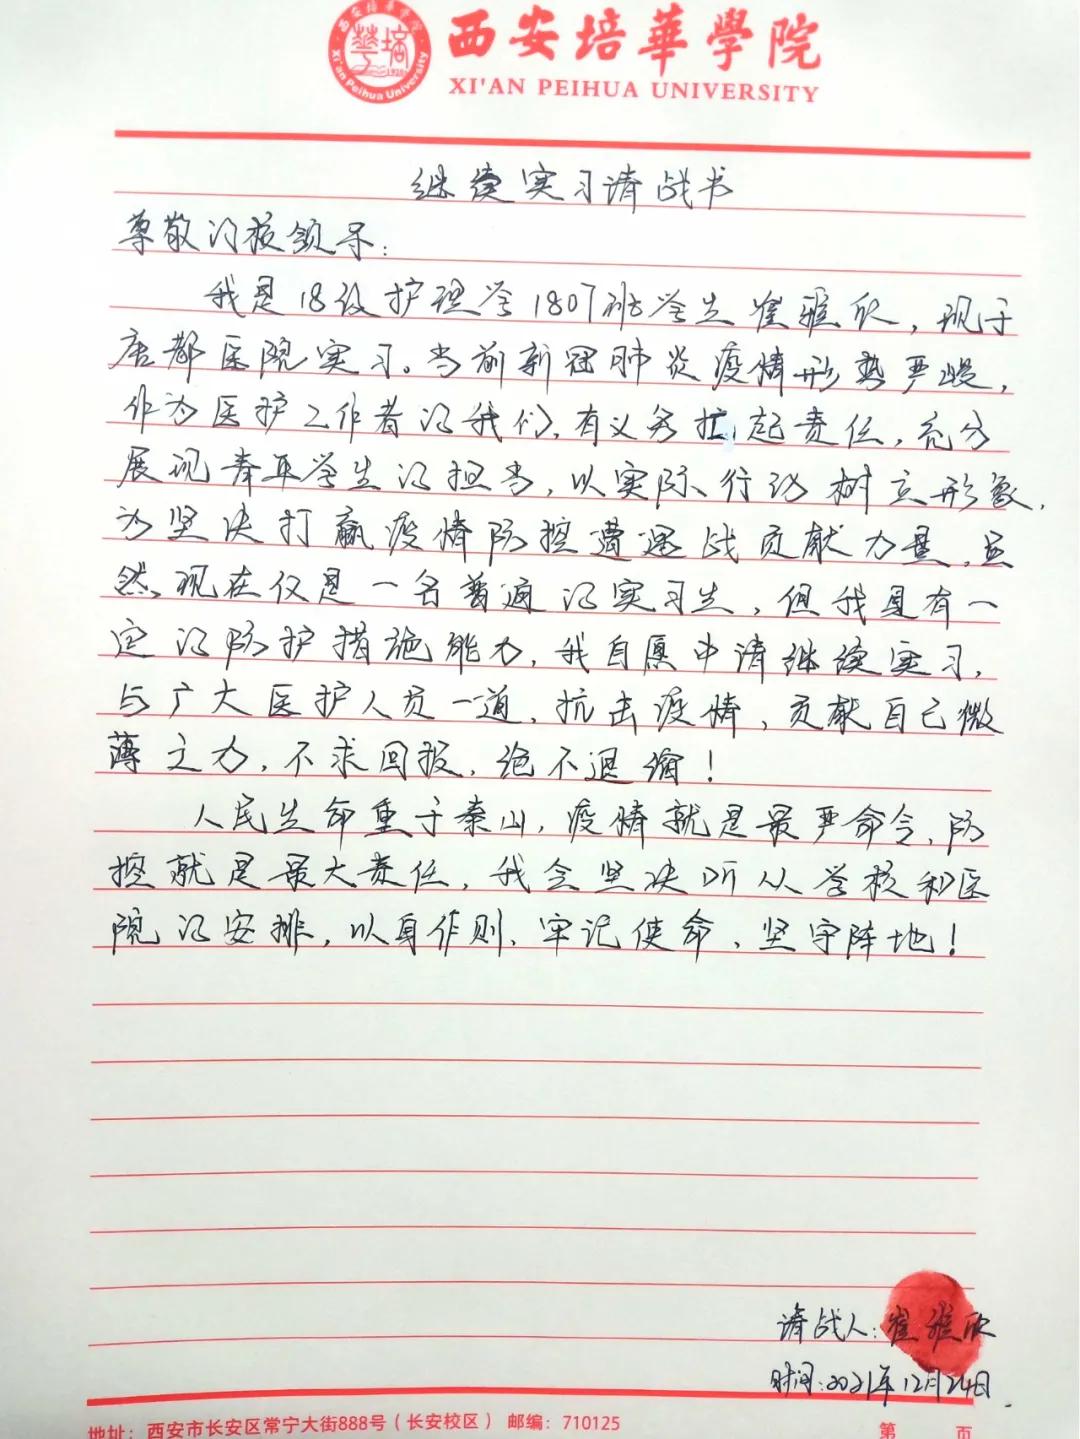 西安培華學院
XI'AN PEIHUA UNIVERSITY
西安培華學院
Xi'an Peihua University
1928
继续实习请战书
尊敬的校领导：
我是18级护理学1807班学生崔雅欣，现于
唐都医院实习。当前新冠肺炎疫情形势严峻，
作为医护工作者的我们，有义务扛起责任，充分
展现青年学生的担当，以实际行动树立形象，
为坚决打赢疫情防控遭遇战贡献力量，虽
然现在仅是一名普通的实习生，但我具有一
定的防护措施能力，我自愿申请继续实习，
与广大医护人员一道，抗击疫情，贡献自己微
薄之力，不求回报，绝不退缩！
人民生命重于泰山，疫情就是最严命令，防
控就是最大责任，我会坚决听从学校和医
院的安排，以身作则、牢记使命、坚守阵地！
请战人：崔雅欣
时间：2021年12月24日.
地址：西安市长安区常宁大街888号（长安校区） 邮编：710125 第 页